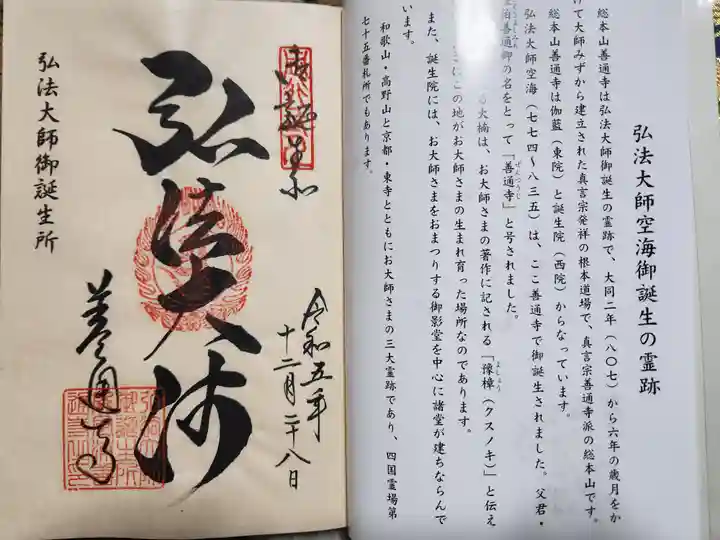 弘法大師空海御誕生の霊跡
総本山善通寺は弘法大師御誕生の霊跡で、大同二年（八〇七）から六年の歳月をか
けて大師みずから建立された真言宗発祥の根本道場で、真言宗善通寺派の総本山です。
総本山善通寺は伽藍（東院）と誕生院（西院）からなっています。
弘法大師空海（七七四〜八三五）は、ここ善通寺で御誕生されました。父君・
善通卿の名をとって「善通寺」と号されました。
ぜんつうじ
る大楠は、お大師さまの著作に記される「豫樟（クスノキ）」と伝え
よしょう
この地がお大師さまの生まれ育った場所なのであります。
また、誕生院には、お大師さまをおまつりする御影堂を中心に諸堂が建ちならんで
います。
和歌山・高野山と京都・東寺とともにお大師さまの三大霊跡であり、四国霊場第
七十五番札所でもあります。
御誕生所
弘法大師
令和五年
十二月二十八日
善通寺
弘法大師御誕生所